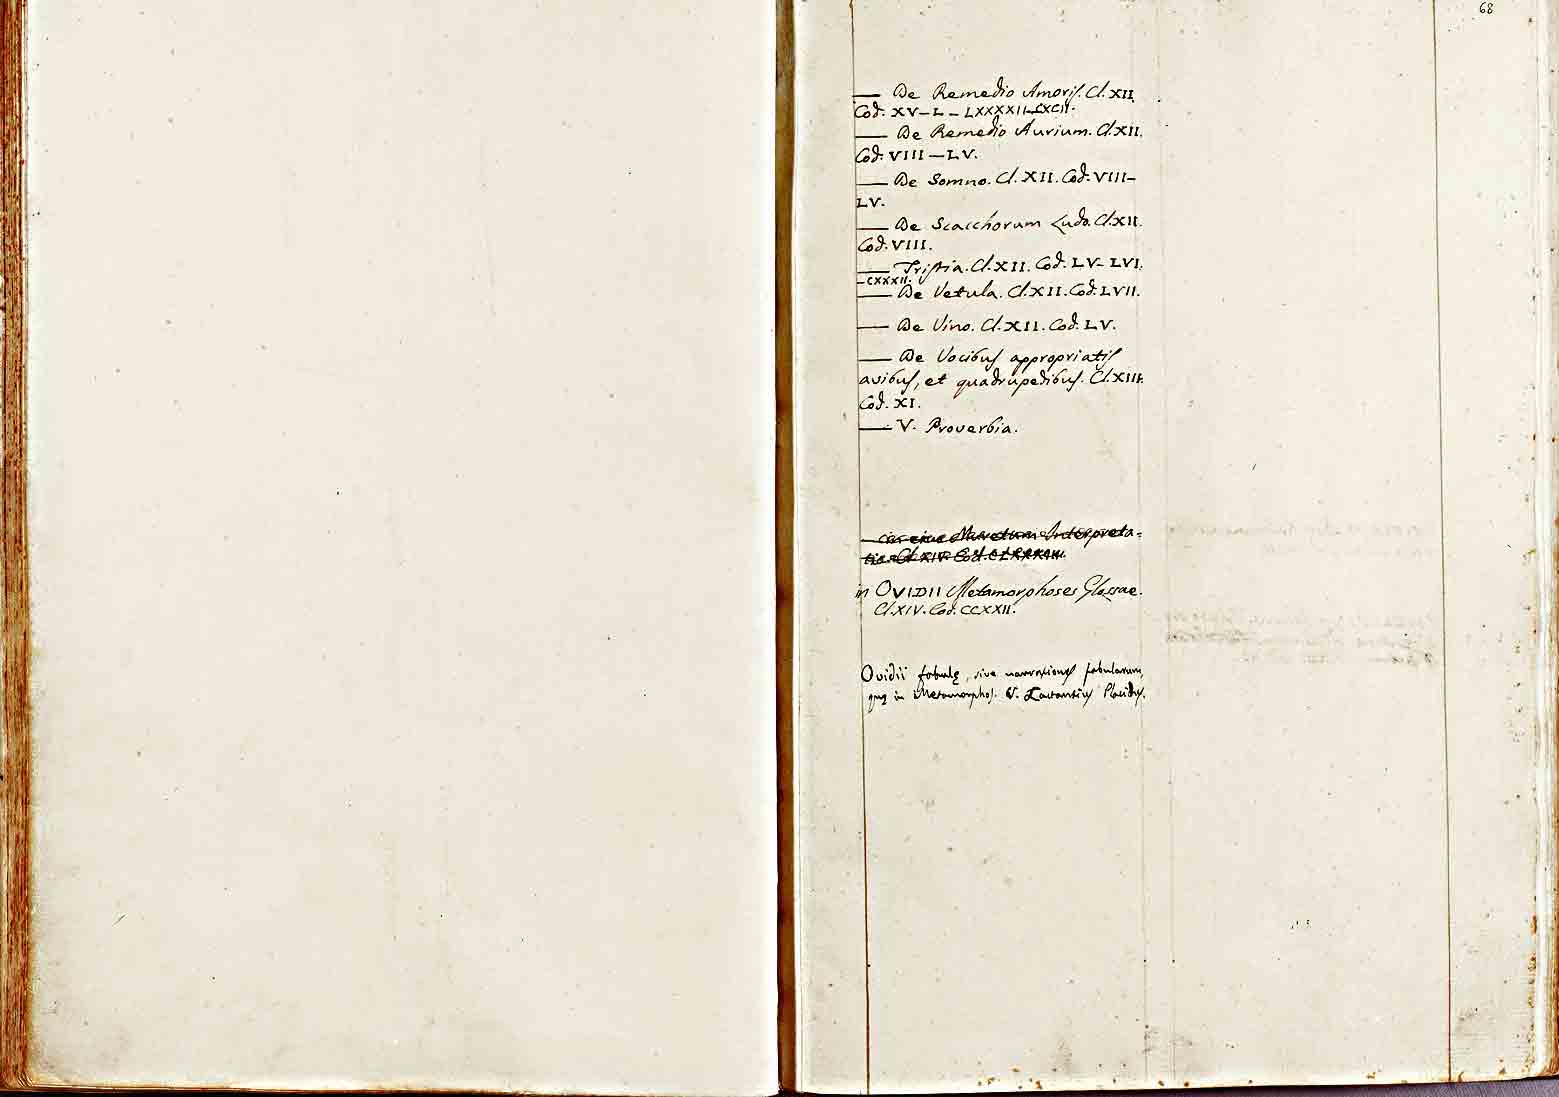 68
— De Remedio Amoris. Cl. XII.
Cod. XV – L – LXXXXII – CXCII.
— De Remedio Aurium. Cl. XII.
Cod. VIII – LV.
— De Somno. Cl. XII. Cod. VIII –
LV.
— De Scacchorum Ludo. Cl. XII.
Cod. VIII.
— Tristia. Cl. XII. Cod. LV – LVI.
– CXXXII.
— De Vetula. Cl. XII. Cod. LVII.
— De Vino. Cl. XII. Cod. LV.
— De Vocibus appropriatis
avibus, et quadrupedibus. Cl. XIII.
Cod. XI.
— V. Proverbia.
Interpreta=
Cl. XIV. Cod.
in OVIDII Metamorphoses Glossae.
Cl. XIV. Cod. CCXXII.
Ovidii fabulę, sive narrationes fabularum,
quę in Metamorphos. V. Lactantius Placidus.